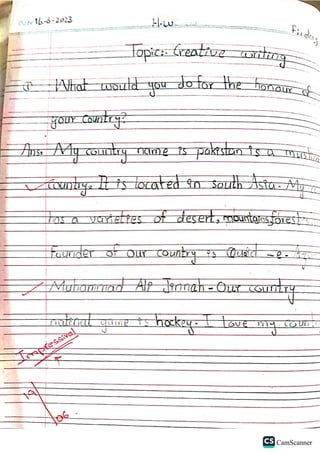 16-6-2023 H.W Friday
Topic:- Creative writing
What would you do for the honour of
your country?
Ans: My country name is pakistan is a
country. It is located in south Asia. My
has a varieties of desert, mountains, forest
Founder of our country is Quaid -e-
Muhammad Ali Jinnah - Our country
national game is hockey. I love my
Impressive
19
06
CS CamScanner